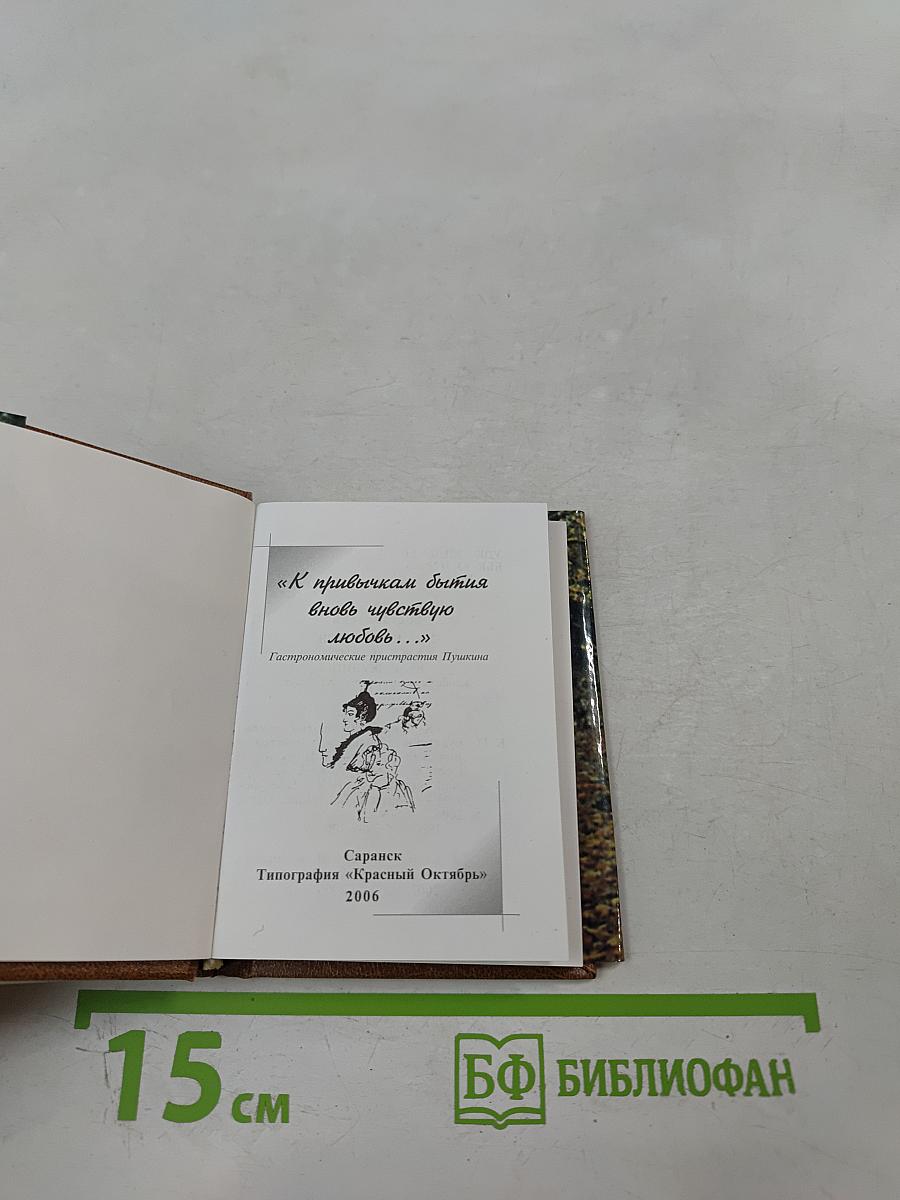 «К привычкам бытия
вновь чувствую
любовь...»
Гастрономические пристрастия Пушкина
Саранск
Типография «Красный Октябрь»
2006
15 см
БФ БИБЛИОФАН